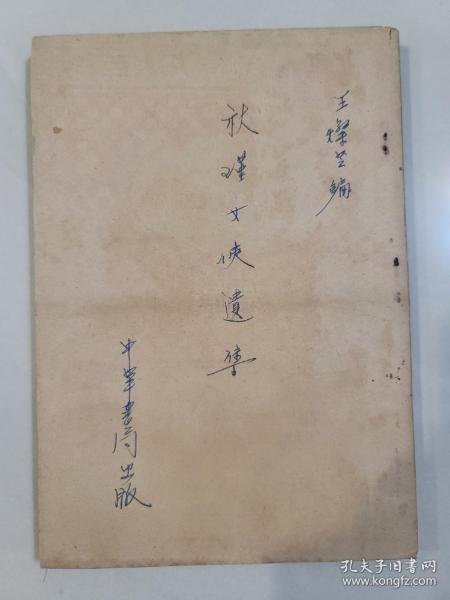 王燦芝編
秋瑾女俠遺集
中華書局出版
孔夫子旧书网
www.kongfz.com